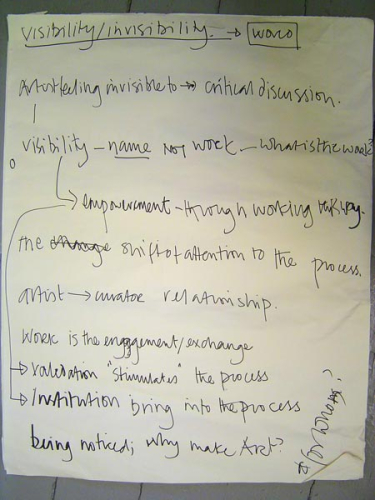 visibility/invisibility. → word
Artist feeling invisible to → critical discussion.
visibility - name not work. - what is the work?
→ empowerment - through working this way.
the change shift of attention to the process.
artist → curator relationship.
Work is the engagement/exchange
→ validation "stimulates" the process
→ Institution bring into the process
being noticed; why make Art?
* for whom?